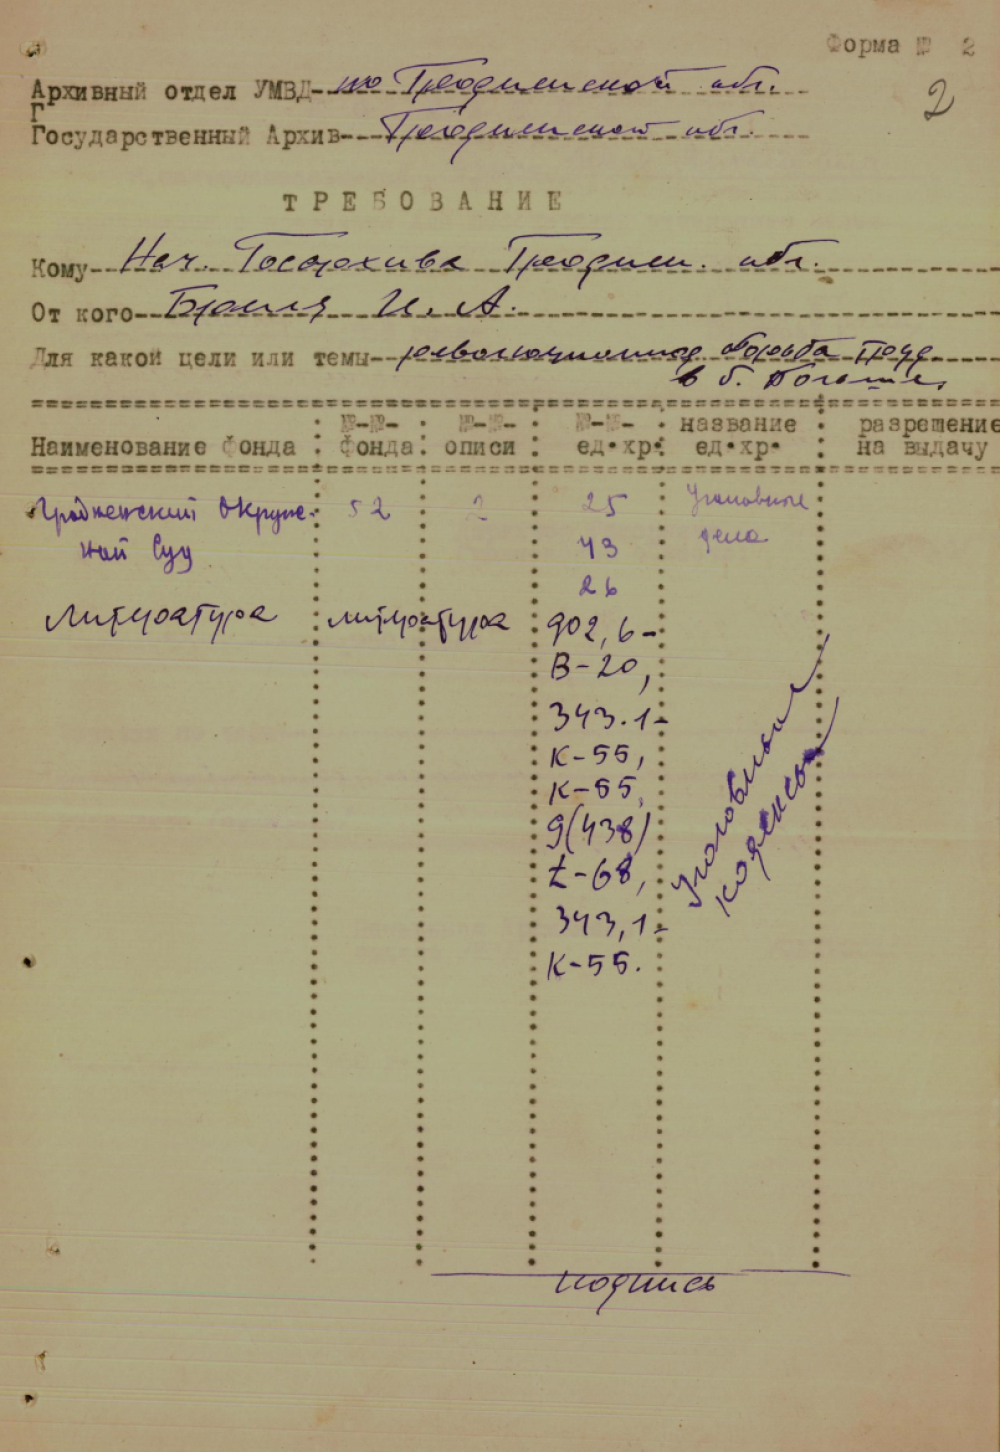 Форма № 2
2
Архивный отдел УМВД по Гродненской обл.
Г
Государственный Архив Гродненской обл.
ТРЕБОВАНИЕ
Кому Нач. Госархива Гроднен. обл.
От кого И. А.
Для какой цели или темы революционная борьба труд
в б. Польше,
Наименование фонда №-№- фонда №-№- описи №-№- ед.хр. название ед.хр. разрешение на выдачу
Гродненский Окруж- 52 2 25 Уголовные
ной Суд 43 дела
26
Литература литература 902,6-
В-20,
343.1-
К-55,
К-55,
9(438)
Ł-68,
343,1-
К-55.
Уголовные
кодексы
подпись